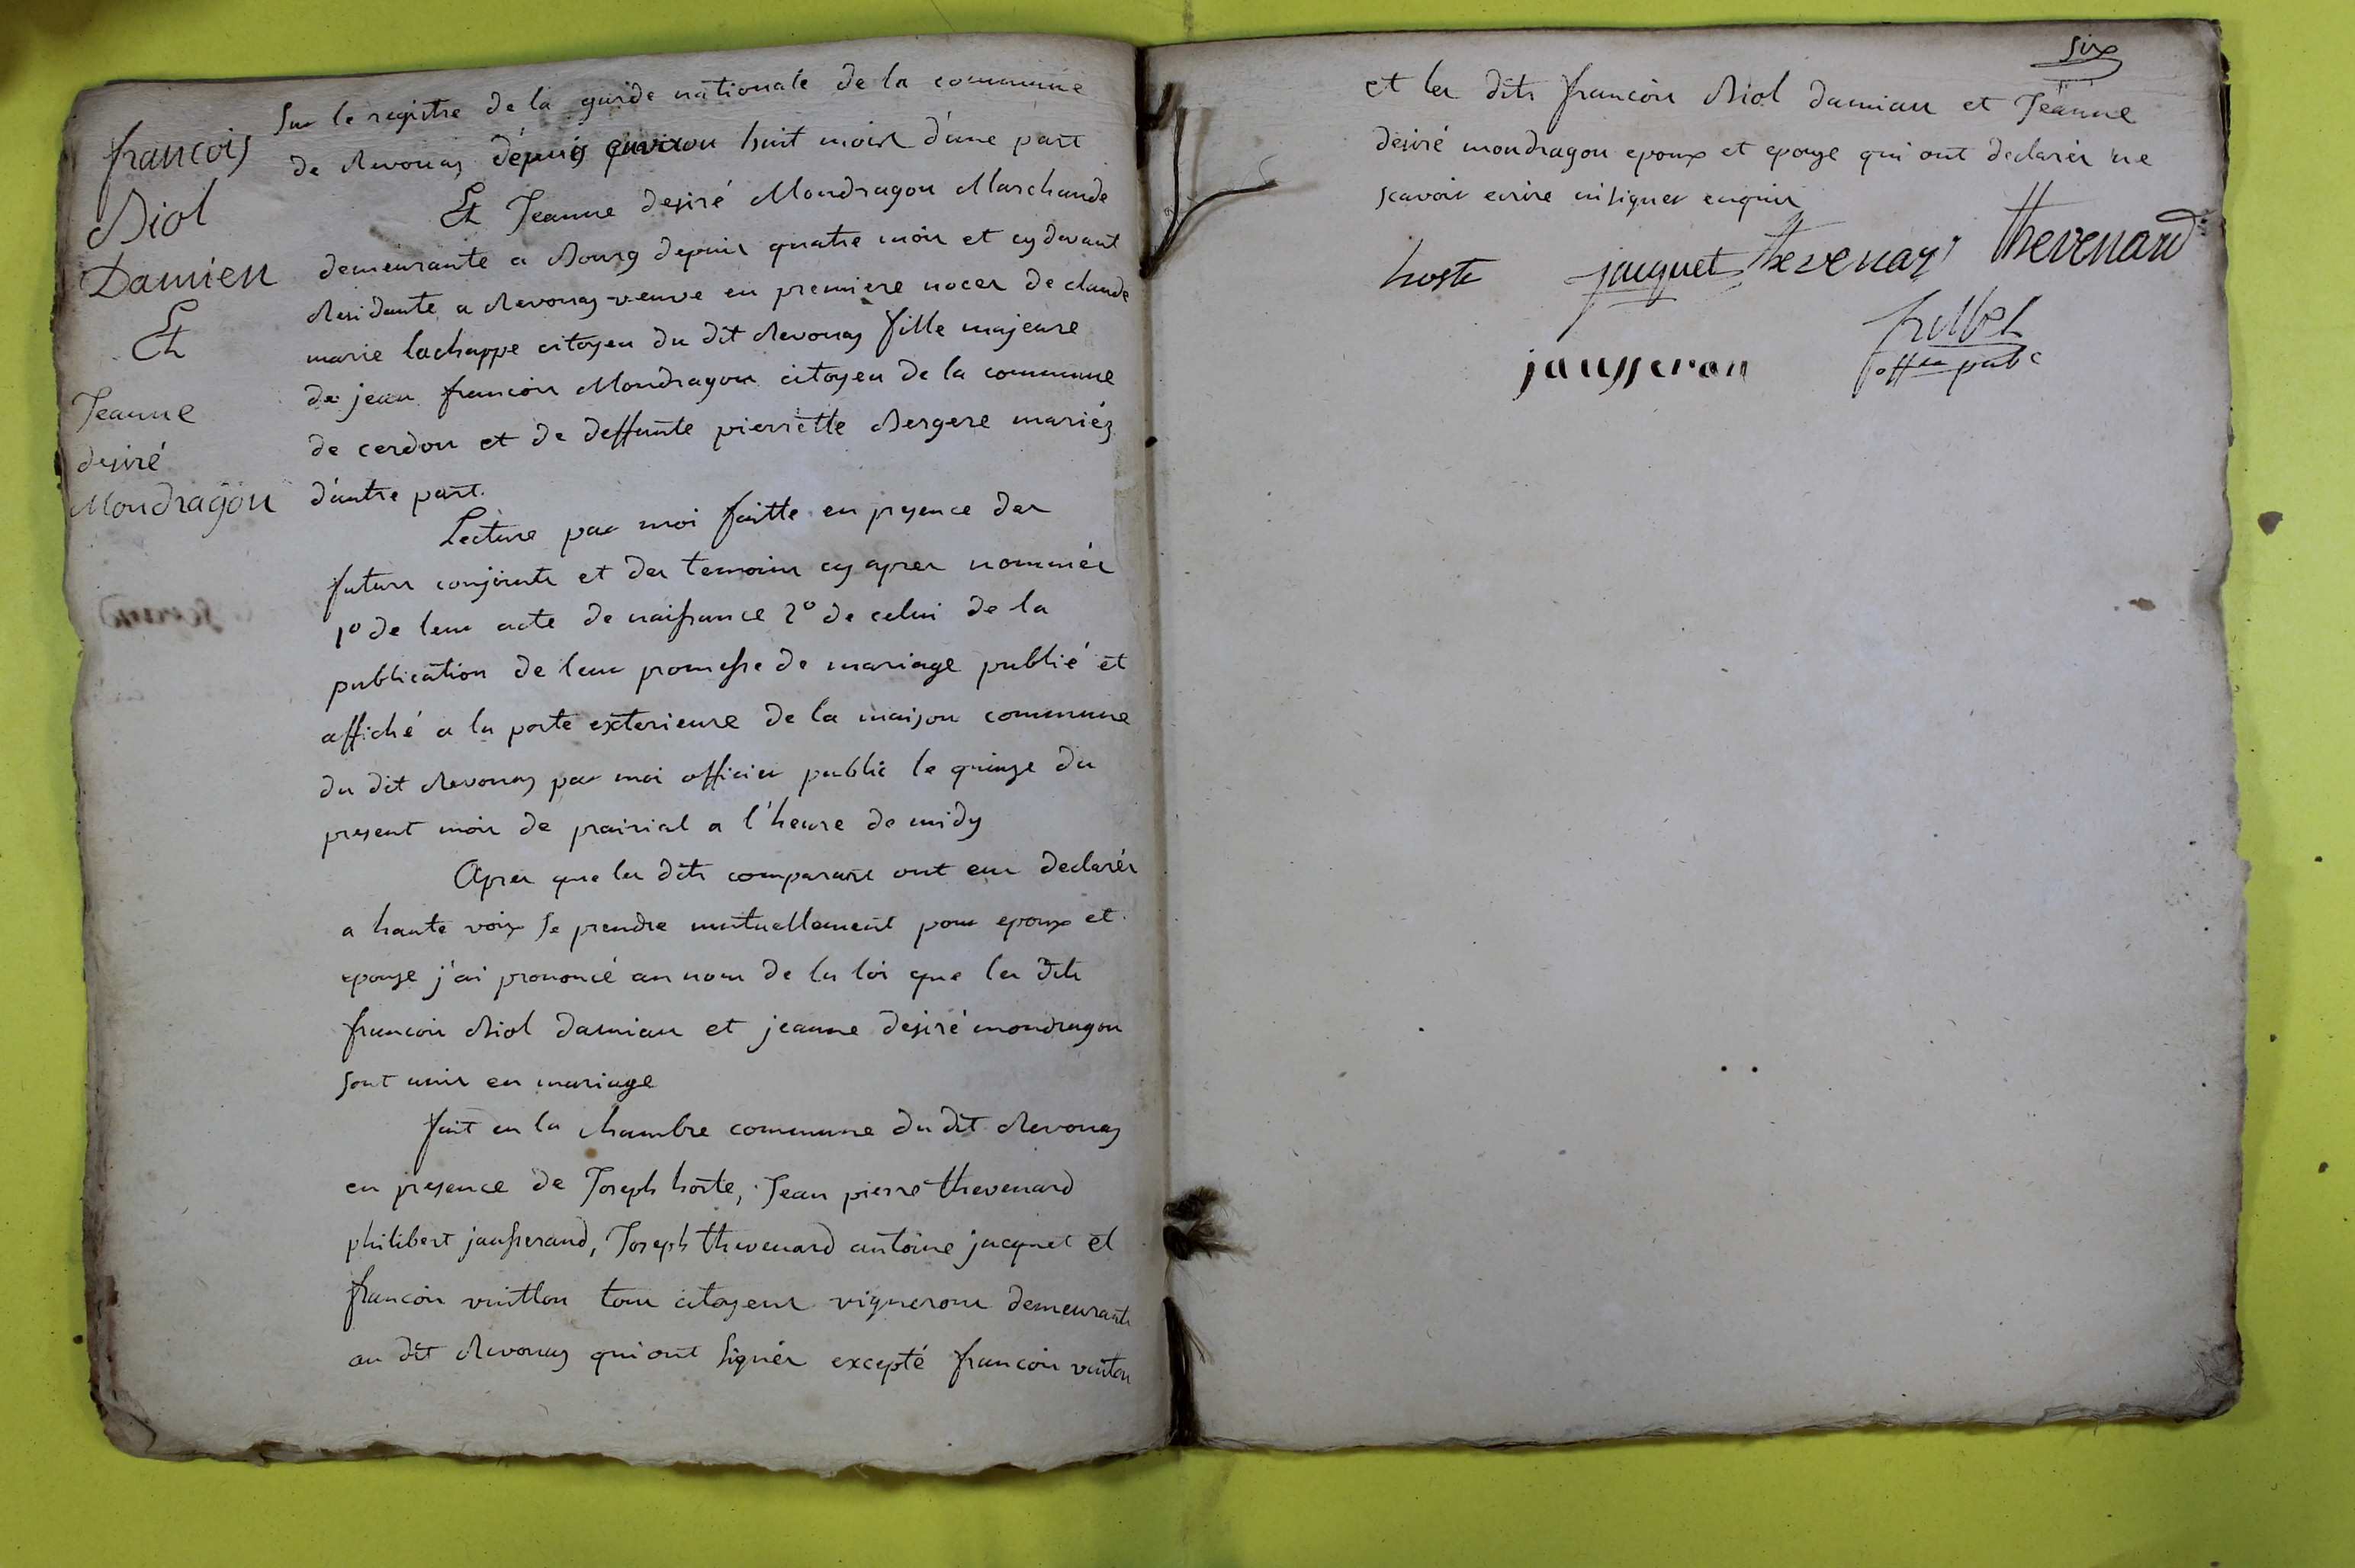 francois
Riol
Damien
Et
Jeanne
desiré
Mondragon
Sur le registre de la garde nationale de la commune
de Revonas depuis environ huit mois d'une part
Et Jeanne desiré Mondragon Marchande
demeurante a Bourg depuis quatre mois et cy devant
Residante a Revonas veuve en premiere noces de claude
marie lachappe citoyen du dit Revonas fille majeure
de jean francois Mondragon citoyen de la commune
de cerdon et de deffunte pierrette Bergere mariés
d'autre part.
Lecture par moi faitte en presence des
futurs conjoints et des temoins cy apres nommés
1º de leur acte de naissance 2º de celui de la
publication de leur promesse de mariage publié et
affiché a la porte exterieure de la maison commune
du dit Revonas par moi officier public le quinze du
present mois de prairial a l'heure de midy
Apres que les dits comparans ont eu declarés
a haute voix se prendre mutuellement pour epoux et
epouse j'ai prononcé au nom de la loi que les dits
francois Riol damian et jeanne desiré mondragon
sont unis en mariage
fait en la chambre commune du dit Revonas
en presence de Joseph hoste, Jean pierre thevenard
philibert jausserand, Joseph thevenard antoine jacquet et
francois vuitton tous citoyens vignerons demeurants
au dit Revonas qui ont signés excepté francois vuiton
six
et les dits francois Riol damian et Jeanne
desiré mondragon epoux et epouse qui ont declarés ne
scavoir ecrire ni signer enquis
hoste jacquet thevenard thevenard
jausseran
off.er pub.c